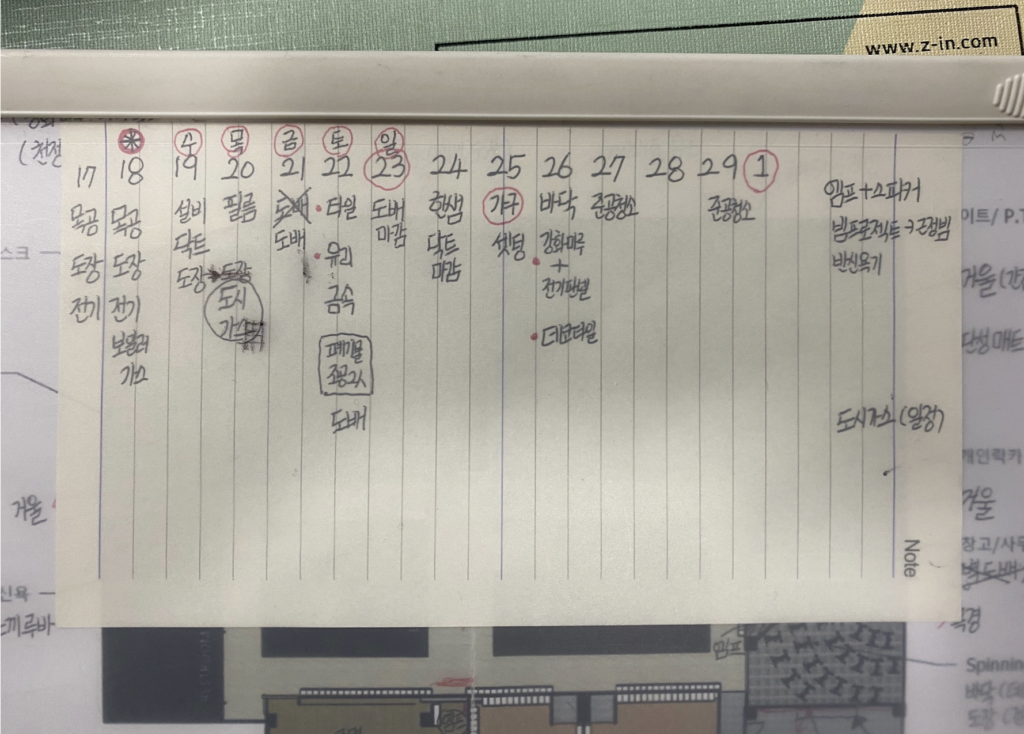 www.z-in.com
(천전
수 목 금 토 일
17 18 19 20 21 22 23 24 25 26 27 28 29 1
목공 목공 설비 필름 도배 타일 도배 한샘 가구 바닥 준공청소 준공청소
도장 도장 닥트 도배 유리 마감 닥트 셋팅 강화마루
전기 전기 도장 도장 금속 마감 +
보일러 도시 폐기물 전기판넬
가스 가스 준공검사 데코타일
도배
앰프+스피커
빔프로젝트→근접빔
반신욕기
도시가스(일정)
Note
스크
거울
신욕
끼루바
이트/ P.T
거울
단성매트
개인락카
거울
창고/사무
벽도배
Spinning
바닥
도장
앰프